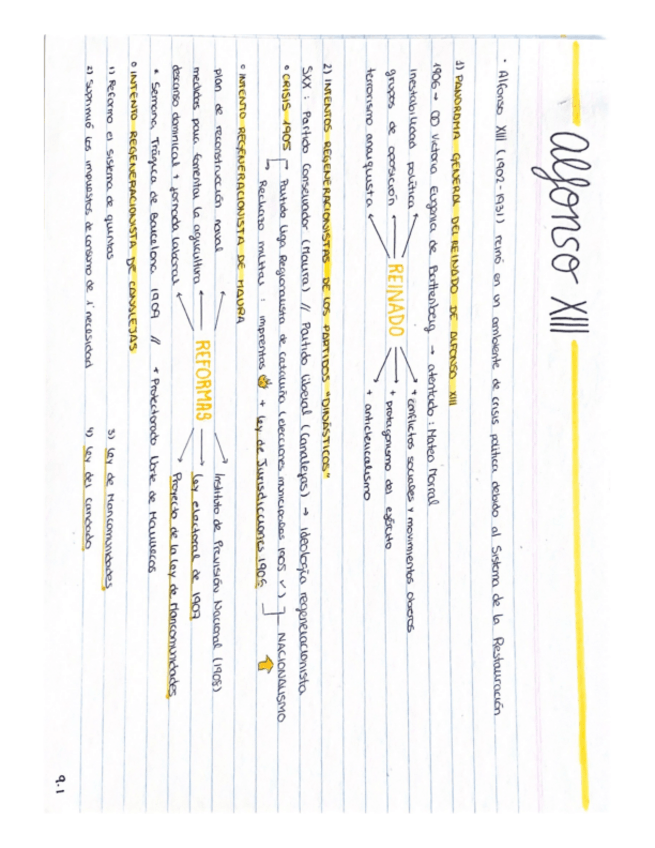 Alfonso XIII
• Alfonso XIII (1902-1931) reinó en un ambiente de crisis política debido al Sistema de la Restauración
1) PANORAMA GENERAL DEL REINADO DE ALFONSO XIII
1906 → Victoria Eugenia de Battenberg → atentado: Mateo Morral
inestabilidad política
+ conflictos sociales y movimientos obreros
grupos de oposición
REINADO
+ protagonismo del ejército
terrorismo anarquista
+ anticlericalismo
2) INTENTOS REGENERACIONISTAS DE LOS PARTIDOS "DINÁSTICOS"
SXX: Partido Conservador (Maura) // Partido Liberal (Canalejas) → ideología regeneracionista
• CRISIS 1905
Partido Liga Regionalista de Cataluña (elecciones municipales 1905 ✓)
NACIONALISMO
Rechazo militar: imprentas + Ley de Jurisdicciones 1906
• INTENTO REGENERACIONISTA DE MAURA
plan de reconstrucción naval
Instituto de Previsión Nacional (1908)
medidas para fomentar la agricultura
REFORMAS
Ley electoral de 1907
descanso dominical + jornada laboral
Proyecto de la Ley de Mancomunidades
* Semana Trágica de Barcelona 1909 // + Protectorado Norte de Marruecos
• INTENTO REGENERACIONISTA DE CANALEJAS
1) Reforma el sistema de quintas
3) Ley de Mancomunidades
2) Suprimió los impuestos de consumo de 1ª necesidad
4) Ley del candado
9.1